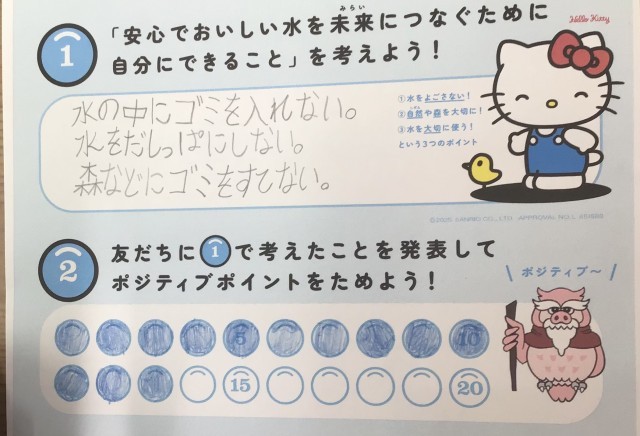 Hello Kitty
1
「安心でおいしい水を未来につなぐために
みらい
自分にできること」を考えよう！
水の中にゴミを入れない。
水をだしっぱにしない。
森などにゴミをすてない。
①水をよごさない！
②自然や森を大切に！
③水を大切に使う！
という3つのポイント
2
友だちに①で考えたことを発表して
ポジティブポイントをためよう！
\ ポジティブ〜 /
5
10
15
20